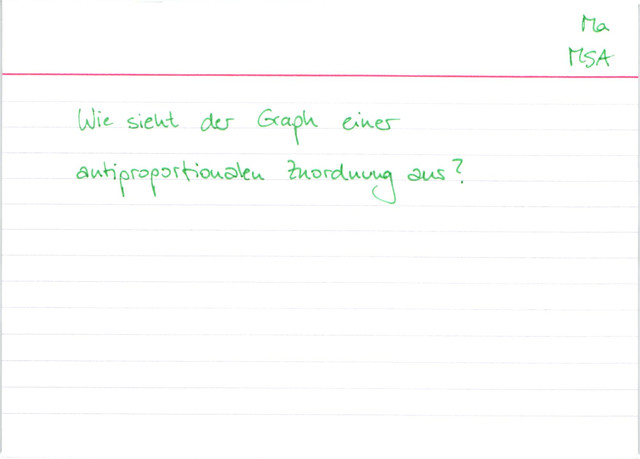 Ma
MSA
Wie sieht der Graph einer
antiproportionalen Zuordnung aus?